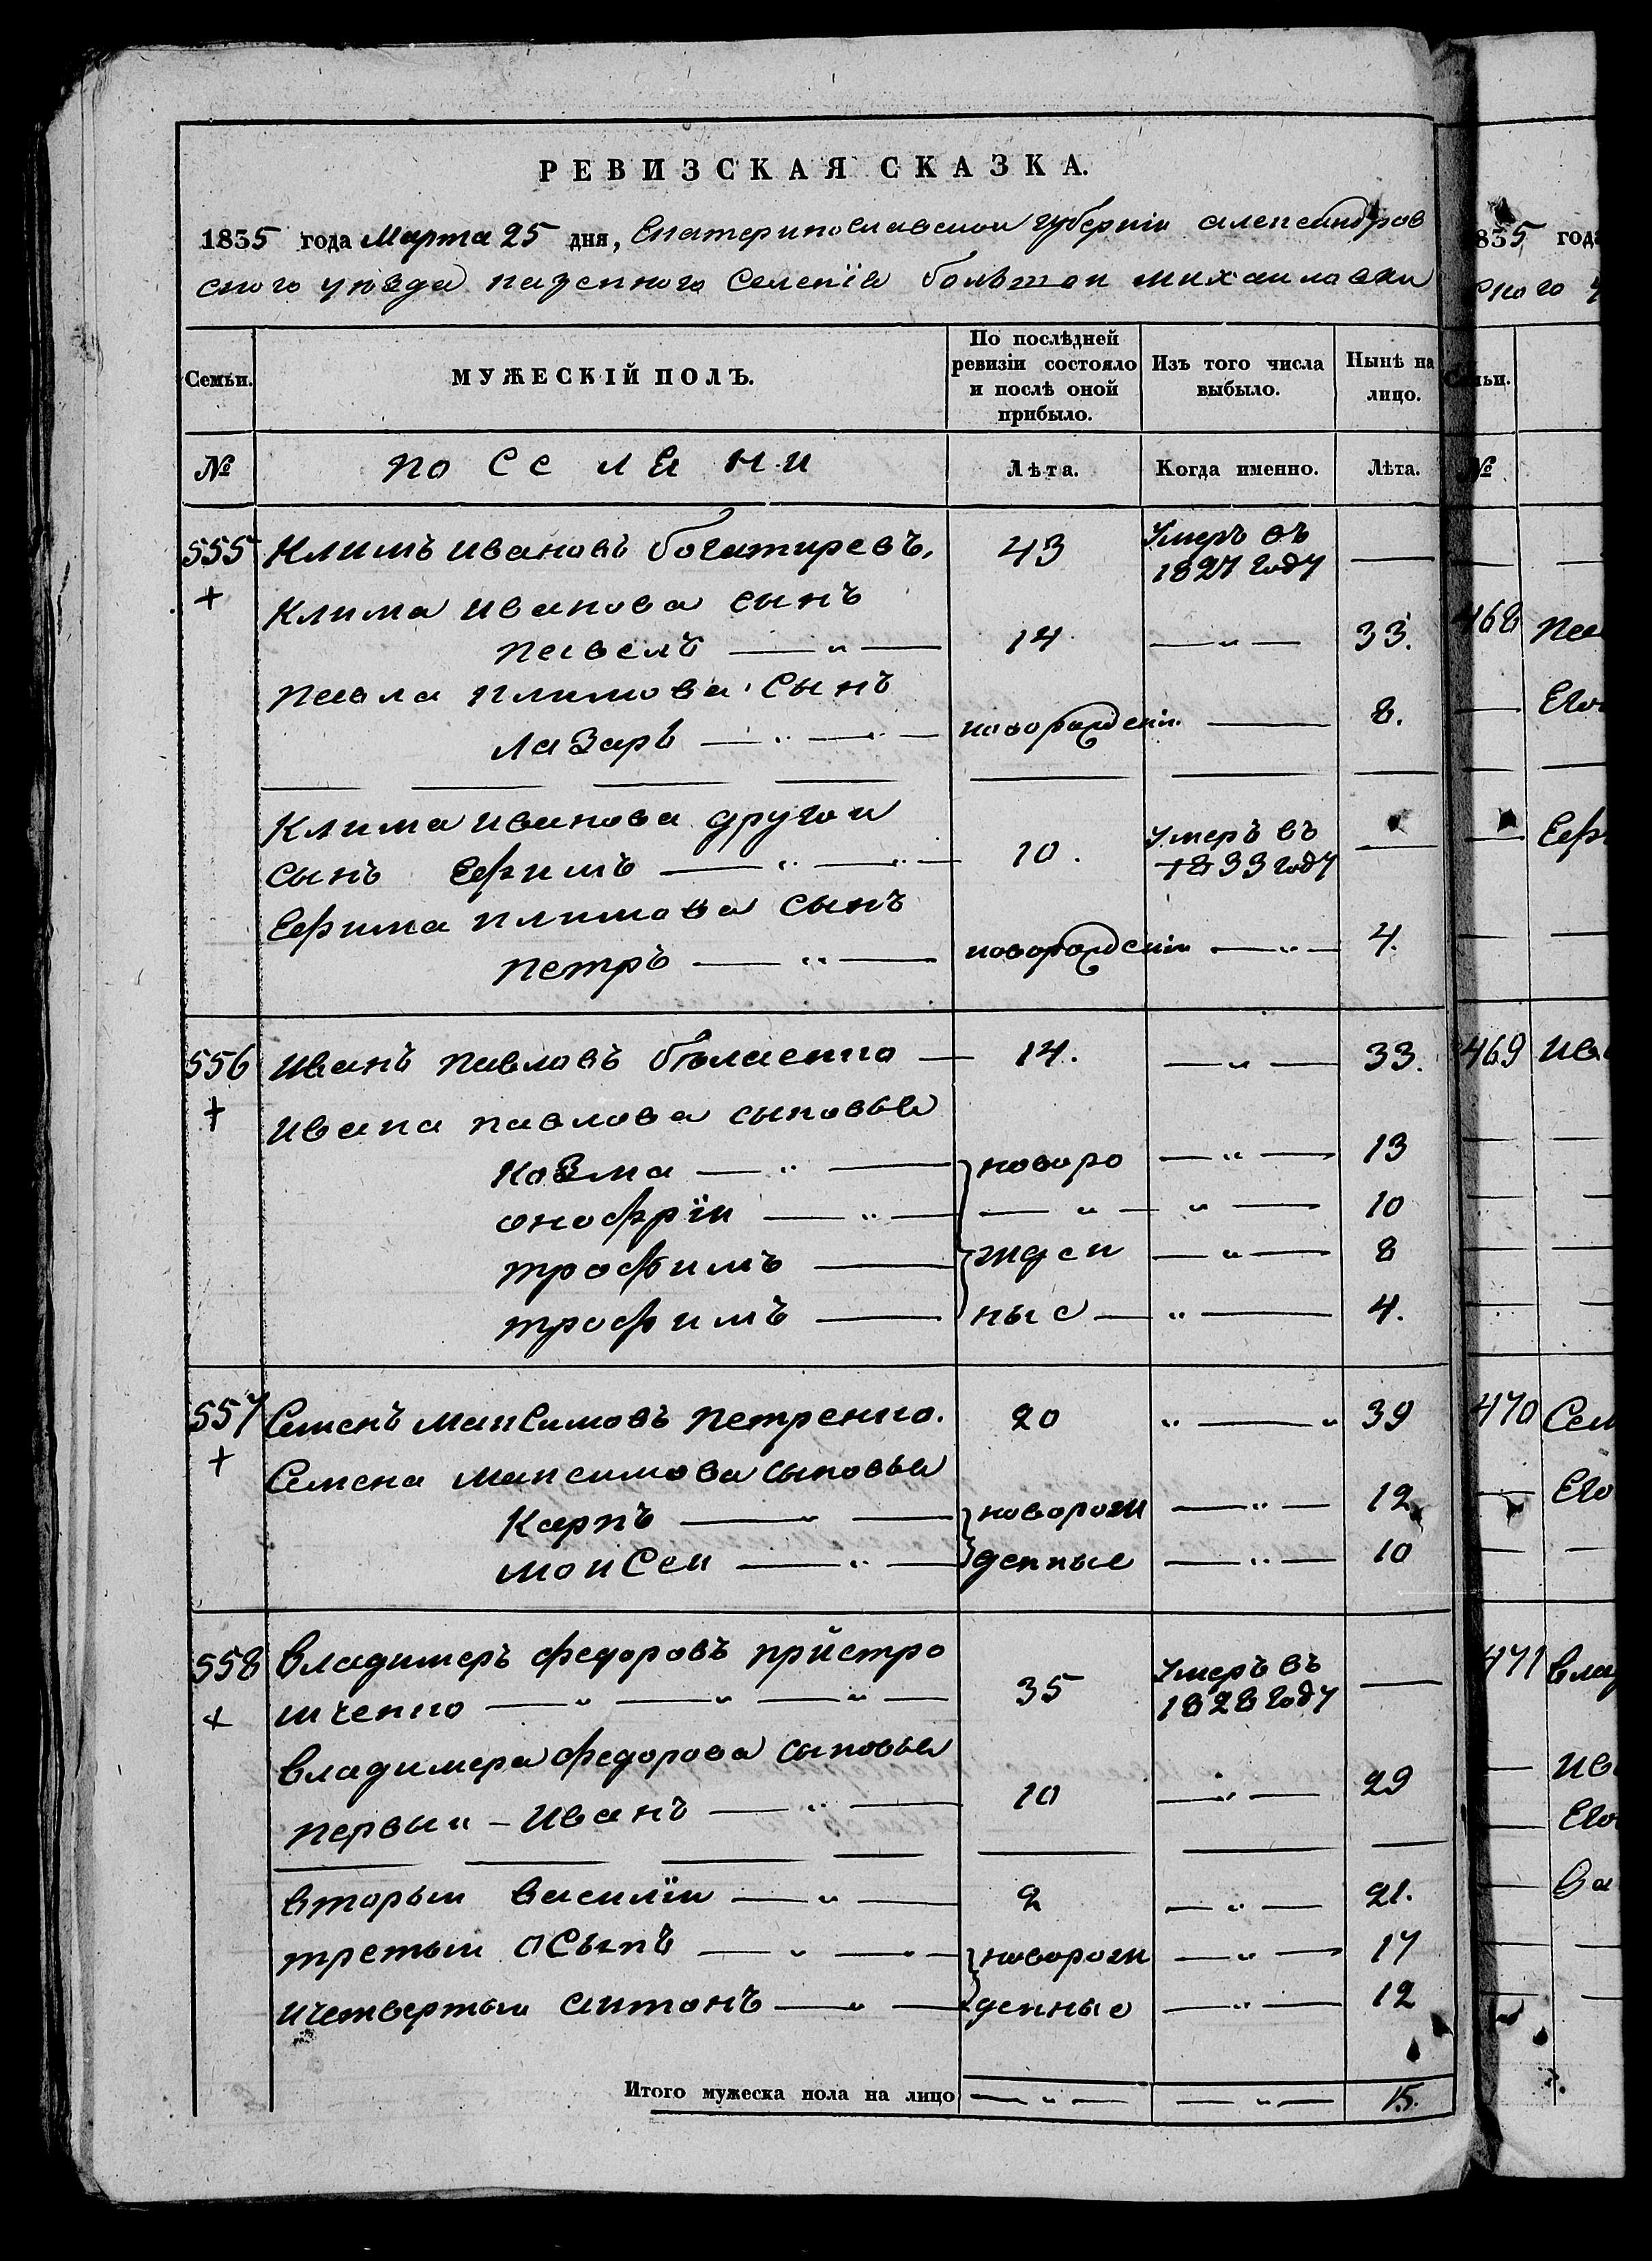 РЕВИЗСКАЯ СКАЗКА.
1835 года Марта 25 дня, Екатеринославской губерніи александров
ского уѣзда казенного Селенія большой михаиловки
Семьи. МУЖЕСКІЙ ПОЛЪ. По послѣдней ревизіи состояло и послѣ оной прибыло. Изъ того числа выбыло. Нынѣ на лицо.
№ поселяни Лѣта. Когда именно. Лѣта.
555 Климъ ивановъ богатиревъ. 43 Умеръ въ 1827 году —
+ Клима иванова сынъ
павелъ — „ — 14 — „ — 33.
павла климова сынъ
лазарь — „ — новорожденій — 8.
Клима иванова другой
сынъ Ефимъ — „ — 10. Умеръ въ 1833 году —
Ефима климова сынъ
петръ — „ — новорожденій — „ — 4.
556 иванъ павловъ бѣлаенко — 14. — „ — 33.
+ ивана павлова сыновья
козма — „ — новоро — „ — 13
онофрій — „ — — „ — „ — 10
трофимъ — жден — „ — 8
трофимъ — ные — „ — 4.
557 Семенъ максимовъ петренко. 20 „ — „ 39
+ Семена максимова сыновья
карпъ — „ — новорож — „ — 12
моисей — „ — денные — „ — 10
558 владимеръ федоровъ пристро
+ мченко — „ — „ — „ — 35 Умеръ въ 1828 году —
владимера федорова сыновья
первый – иванъ — „ — 10 — „ — 29
вторый василій — „ — 2 — „ — 21.
третый осыпъ — „ — новорож — „ — 17
ичетвертый антонъ — „ — денные — „ — 12
Итого мужеска пола на лицо — „ — — „ — 15.
835 года
ского у
Семьи.
№
468 пав
Его
Ефи
469 ива
470 Сем
Его
471 влад
ив
Его
ва